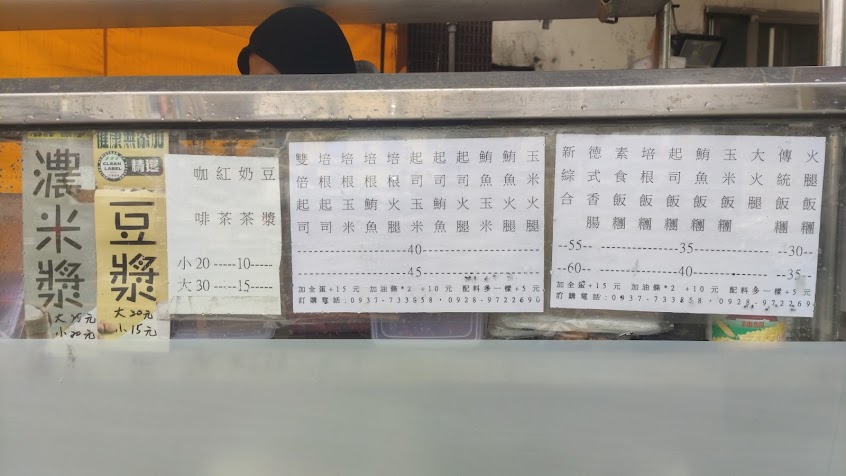 濃米漿
大25元
小20元
健康無添加
CLEAN LABEL
精選
豆漿
大20元
小15元
咖啡
紅茶
奶茶
豆漿
小20---10-----
大30----15-----
雙倍起司
培根起司
培根玉米
培根鮪魚
培根火腿
起司玉米
起司鮪魚
起司火腿
鮪魚玉米
鮪魚火腿
玉米火腿
40
45
加全蛋+15元 加油條*2 +10元 配料多一樣+5元
訂購電話:0937-733858,0928-972269
新綜合
德式香腸
素食飯糰
培根飯糰
起司飯糰
鮪魚飯糰
玉米飯糰
大火腿
傳統飯糰
火腿飯糰
--55------------35-----------30--
--60------------40-----------35--
加全蛋+15元 加油條*2 +10元 配料多一樣+5元
訂購電話:0937-733858,0928-972269